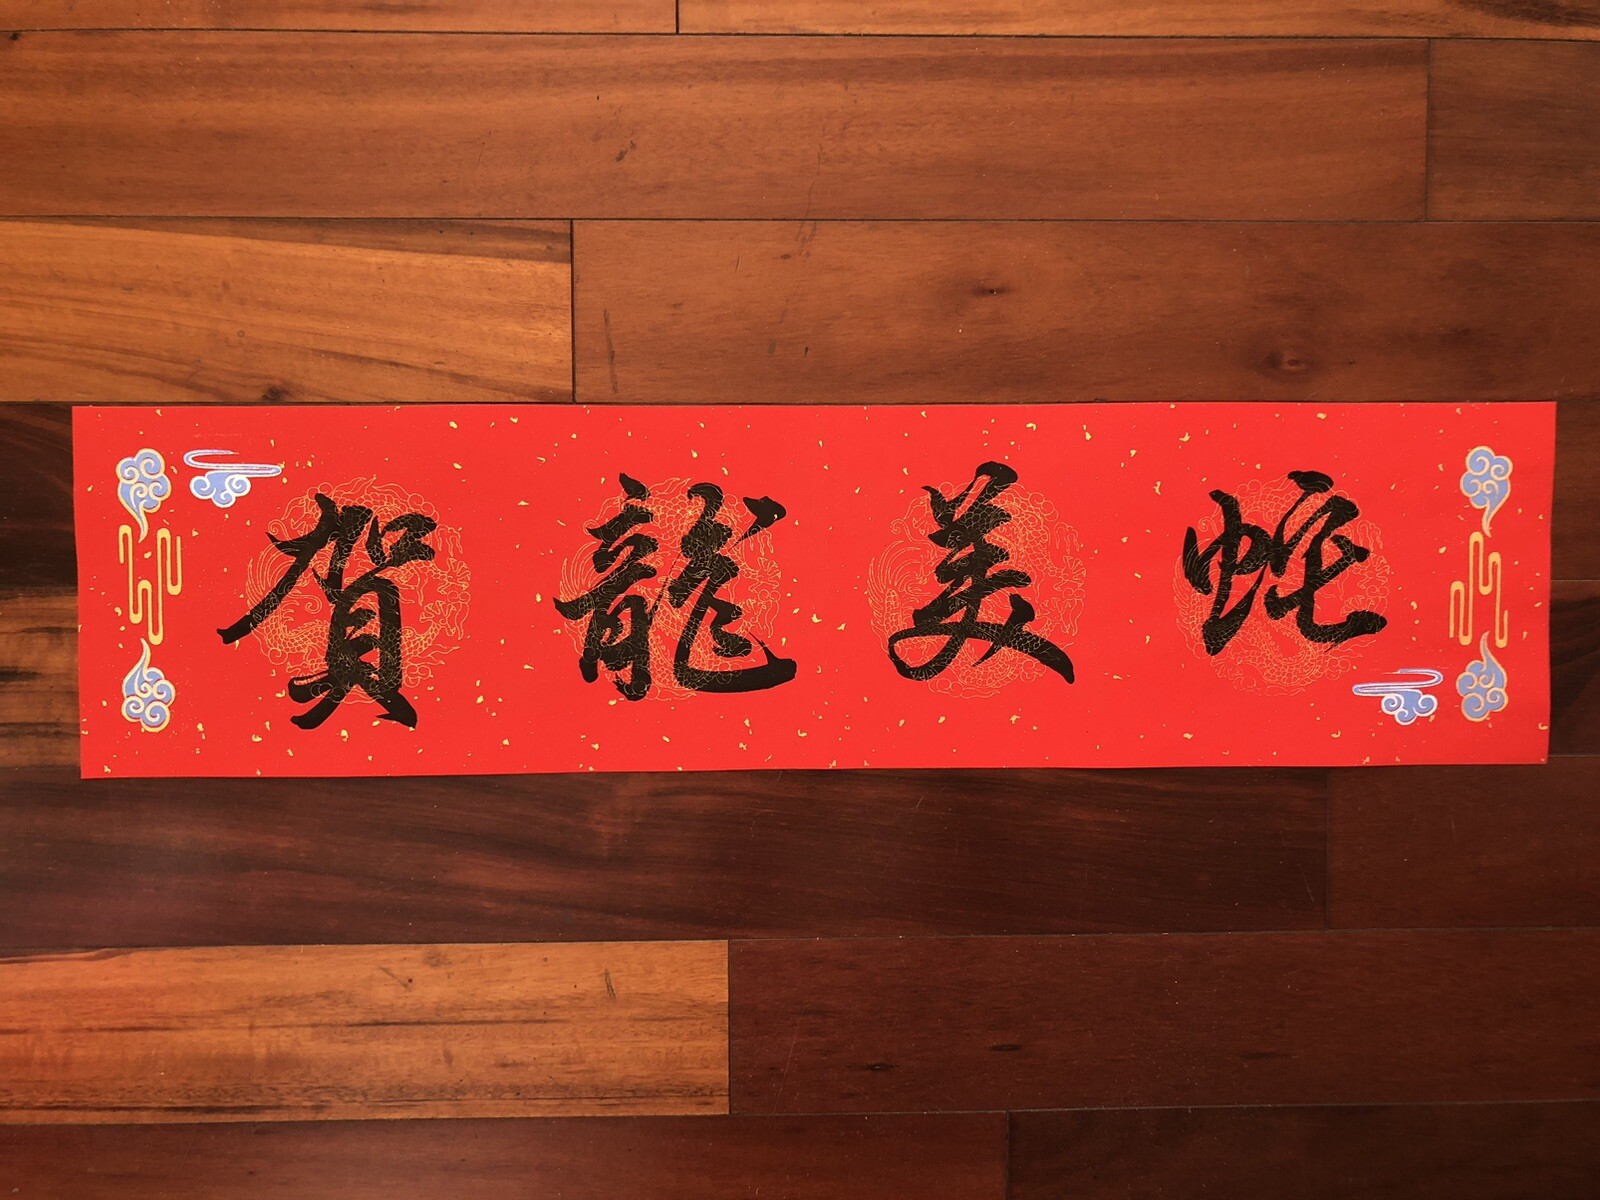 賀龍美蛇